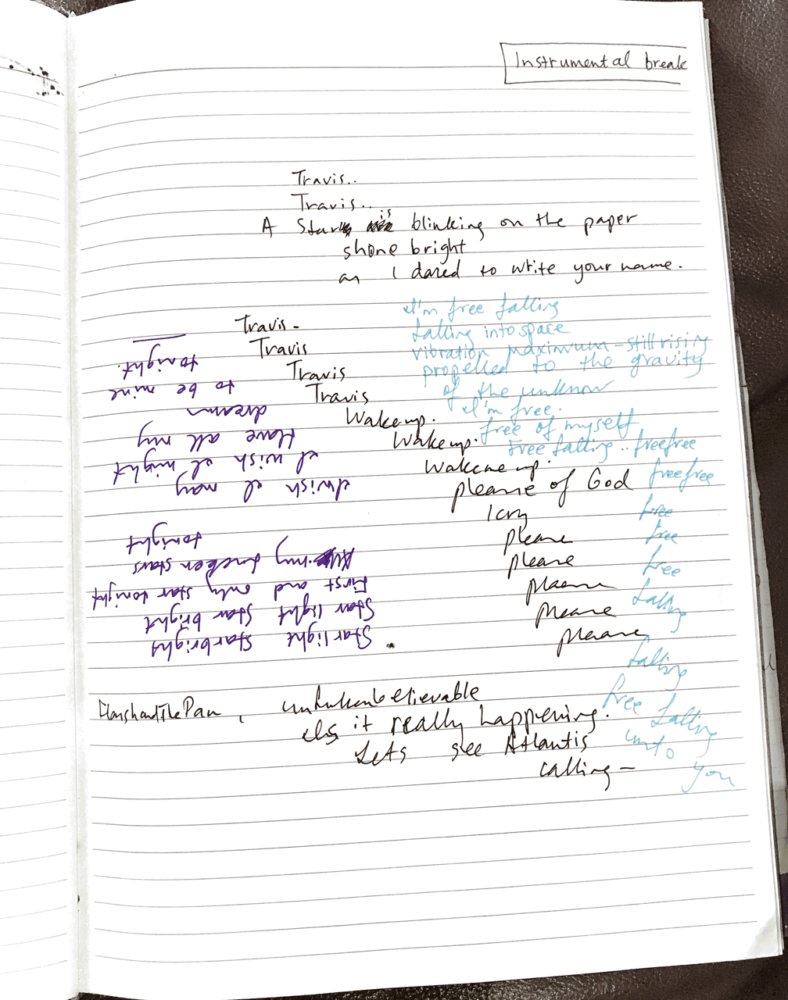 Instrumental break
Travis..
Travis..
A Star is blinking on the paper
shone bright
as I dared to write your name.
Travis -
Travis
Travis
Travis
Wake up.
Wake up.
Wake me up.
please of God
I cry
please
please
please
please
please
I'm free falling
falling into space
vibration maximum - still rising
propelled to the gravity
of the unknow
I'm free.
free of myself
free falling .. freefree
freefree
free
free
free
falling
falling
free falling
unto
you
Starlight Starbright
Star light Star bright
First and only star tonight
my broken stars
tonight
I wish I may
I wish I might
Have all my
dreams
to be mine
tonight.
FlashandThePan, unbelievable
Is it really happening.
Lets see Atlantis
calling -